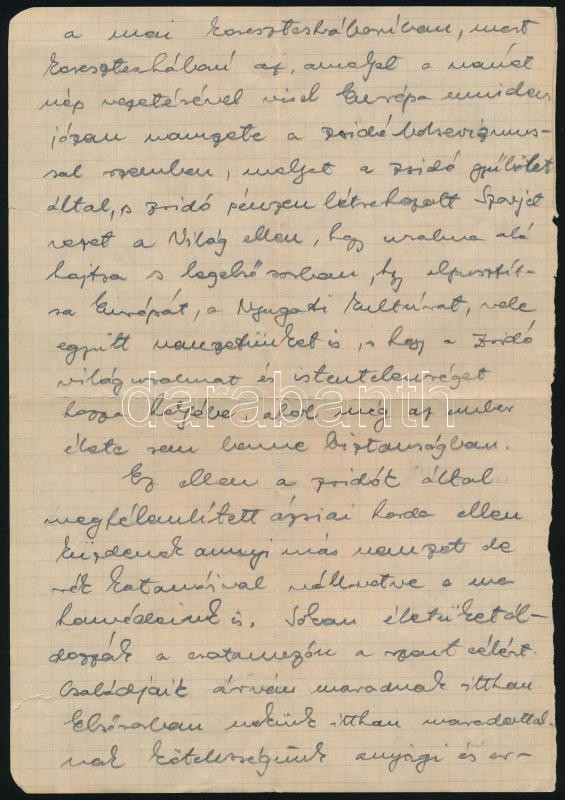 a mai keresztesháborúban, mert
keresztesháború az, amelyet a német
nép vezetésével visel Európa minden
józan nemzete a zsidóbolsevizmus-
sal szemben, melyet a zsidó gyűlölet
által, s zsidó pénzen létrehozott Szovjet
vezet a Világ ellen, hogy uralma alá
hajtsa s legelső sorban, hogy elpusztít-
sa Európát, a Nyugati Kultúrát, vele
együtt nemzetünket is, s hogy a zsidó
világuralmat és istentelenséget
hozza helyébe, ahol még az ember
élete sem lenne biztonságban.
Ez ellen a zsidók által
megfélemlített ázsiai horda ellen
küzdenek annyi más nemzet de
rék katonáival vállvetve a mi
honvédeink is. Sokan életüket ál-
dozzák a csatamezőn a szent célért.
Családjaik árván maradnak itthon.
Elsősorban nekünk itthon maradottak-
nak kötelességünk anyagi és er-
darabanth